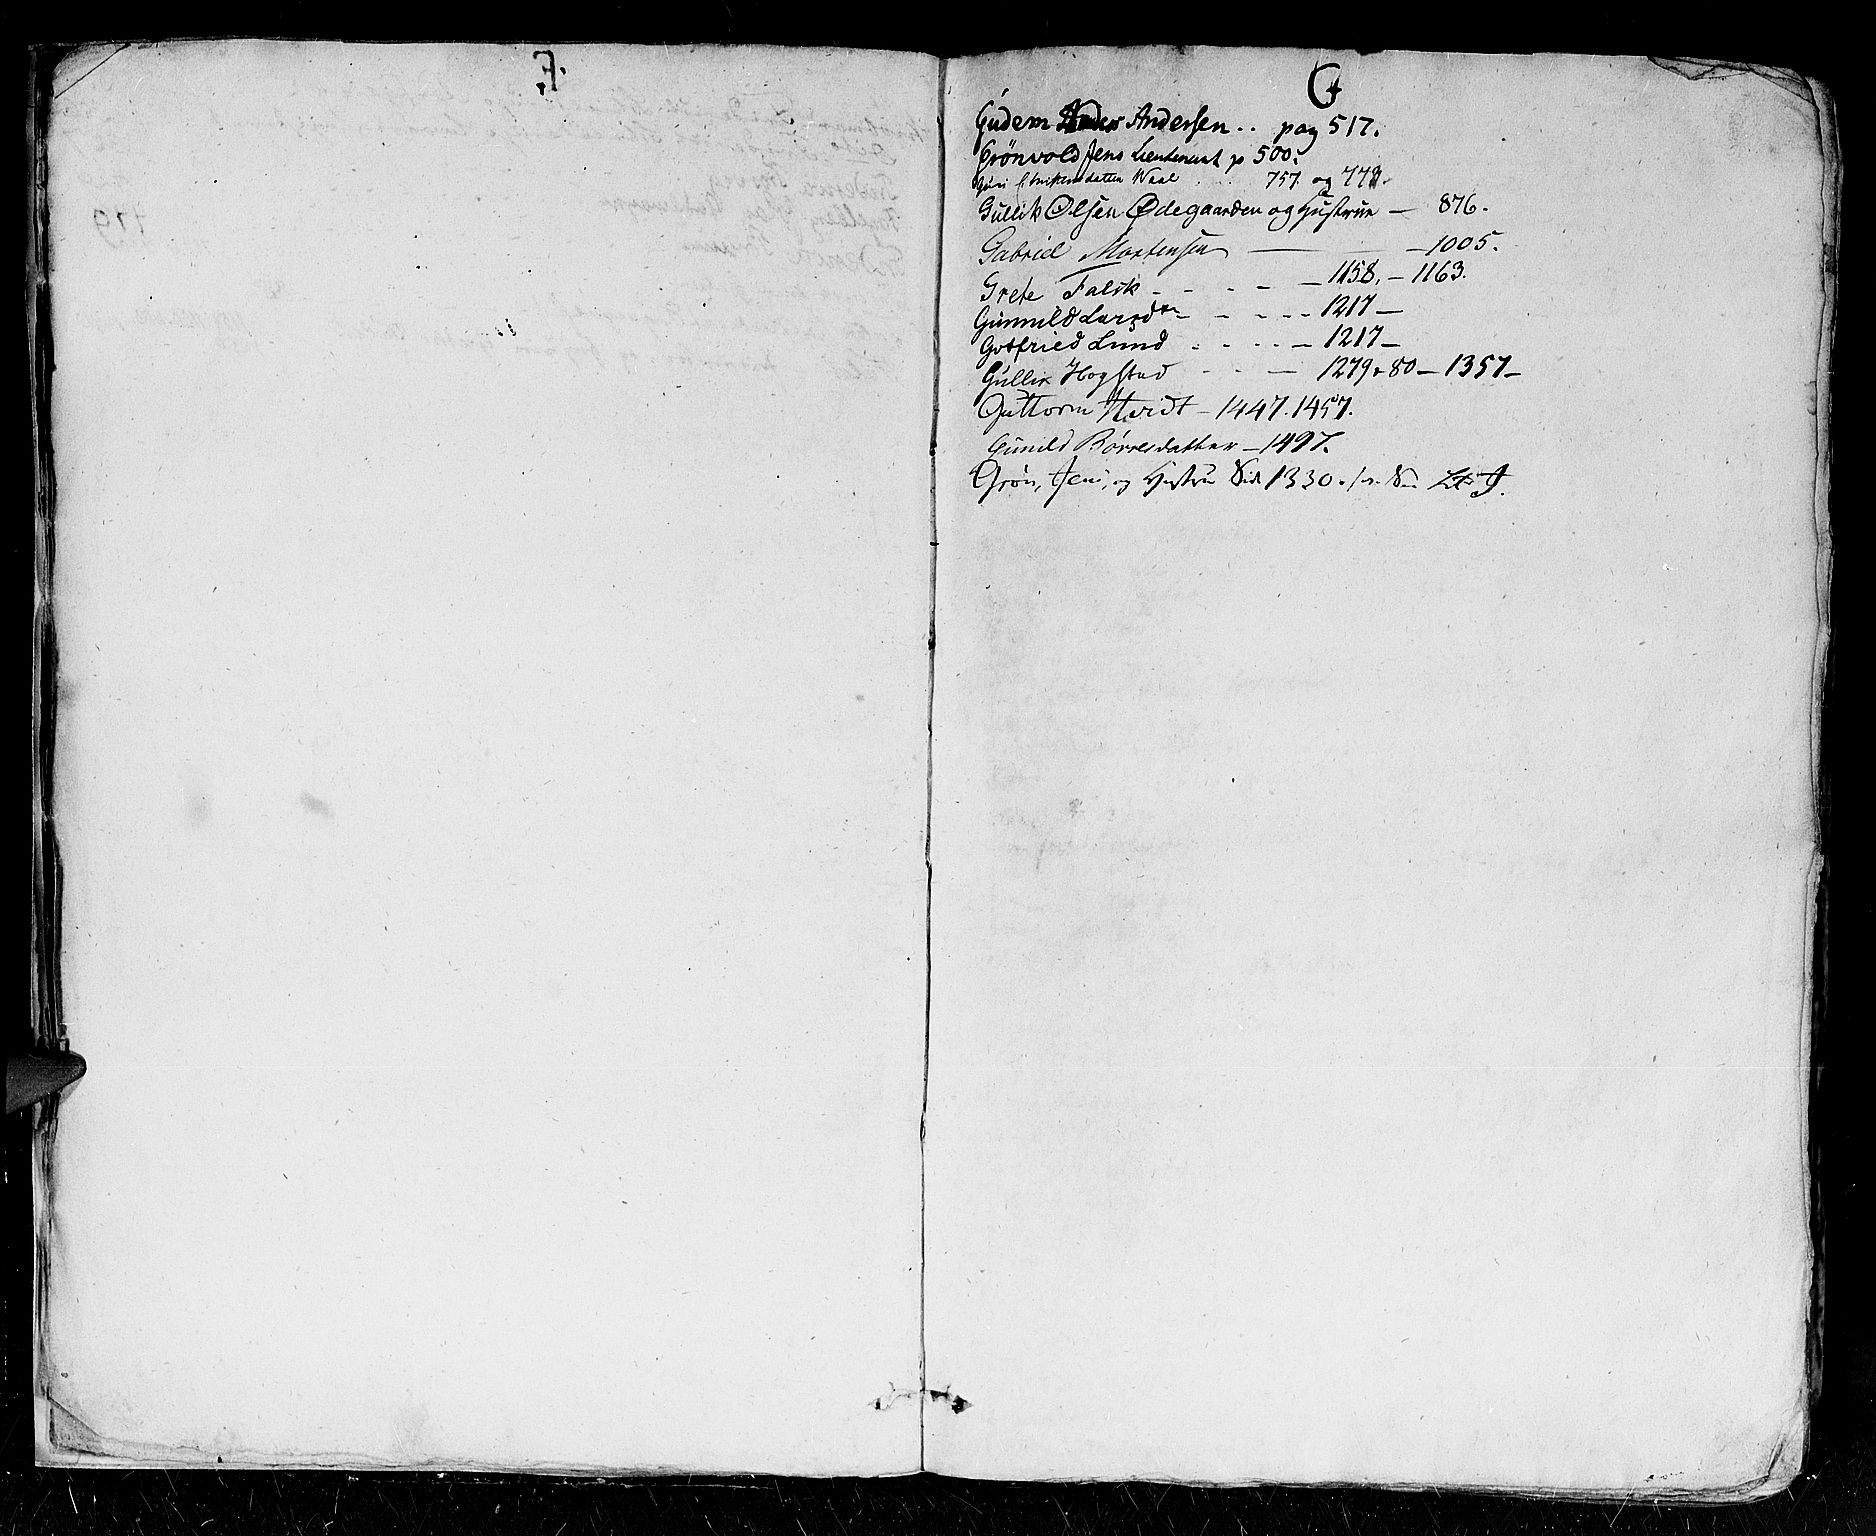 F.
G
Gúdem Andersen .. pag 517.
Grönvold Jens Lieutenant p 500.
Guri Waal . . . 757. og 778.
Gúllik Olsen Ødegaarden og Hustrue — 876.
Gabriel Mortensen — — — 1005.
Grete Falsk - - - - — 1158. — 1163.
Gunnild Larsd - - - - — 1217 —
Gotfried Lund - - - - — 1217 —
Gúllik Hogstad - - — 1279 80 — 1357 —
Guttorm — 1447. 1457.
Gunild Börresdatter — 1497.
Grön, Jens, og Hustrú Side 1330.